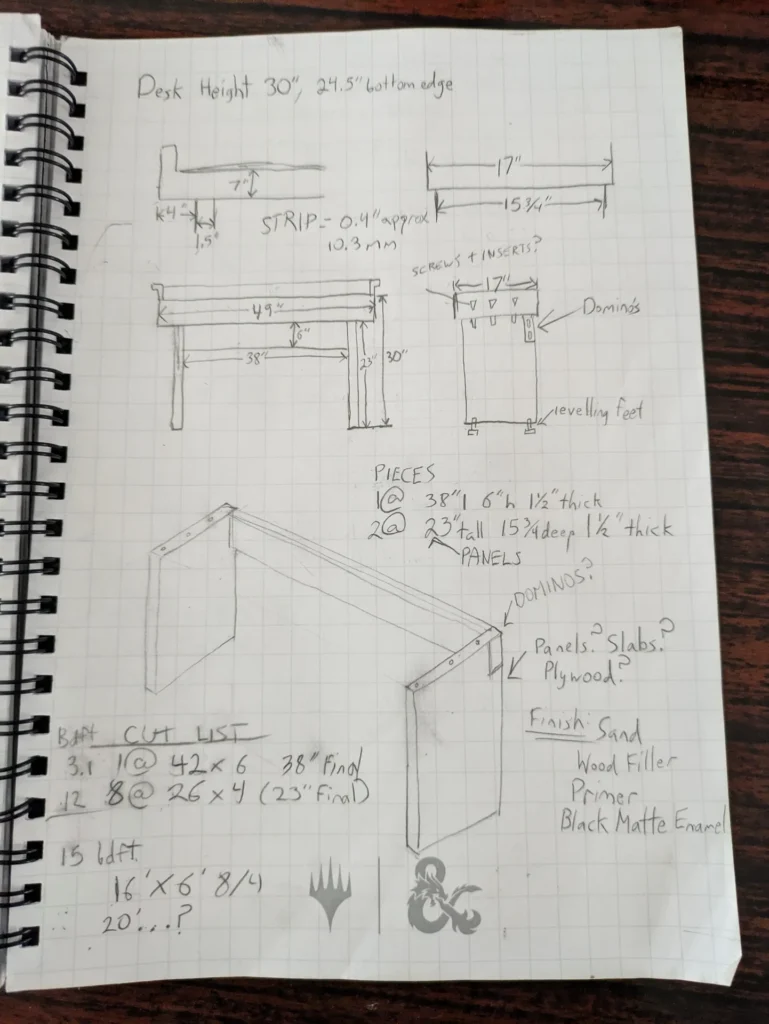 Desk Height 30", 24.5" bottom edge
7"
4"
1.5"
STRIP - 0.4" approx
10.3 mm
17"
15 3/4"
SCREWS + INSERTS?
17"
Domino's
levelling feet
49"
6"
38"
23"
30"
PIECES
1@ 38"l 6"h 1 1/2" thick
2@ 23" tall 15 3/4 deep 1 1/2" thick
PANELS
DOMINOS?
Panels? Slabs?
Plywood?
Finish: Sand
Wood Filler
Primer
Black Matte Enamel
Bdft CUT LIST
3.1 1@ 42 x 6 38" Final
12 8@ 26 x 4 (23" Final)
15 bdft.
16' x 6' 8/4
20'...?